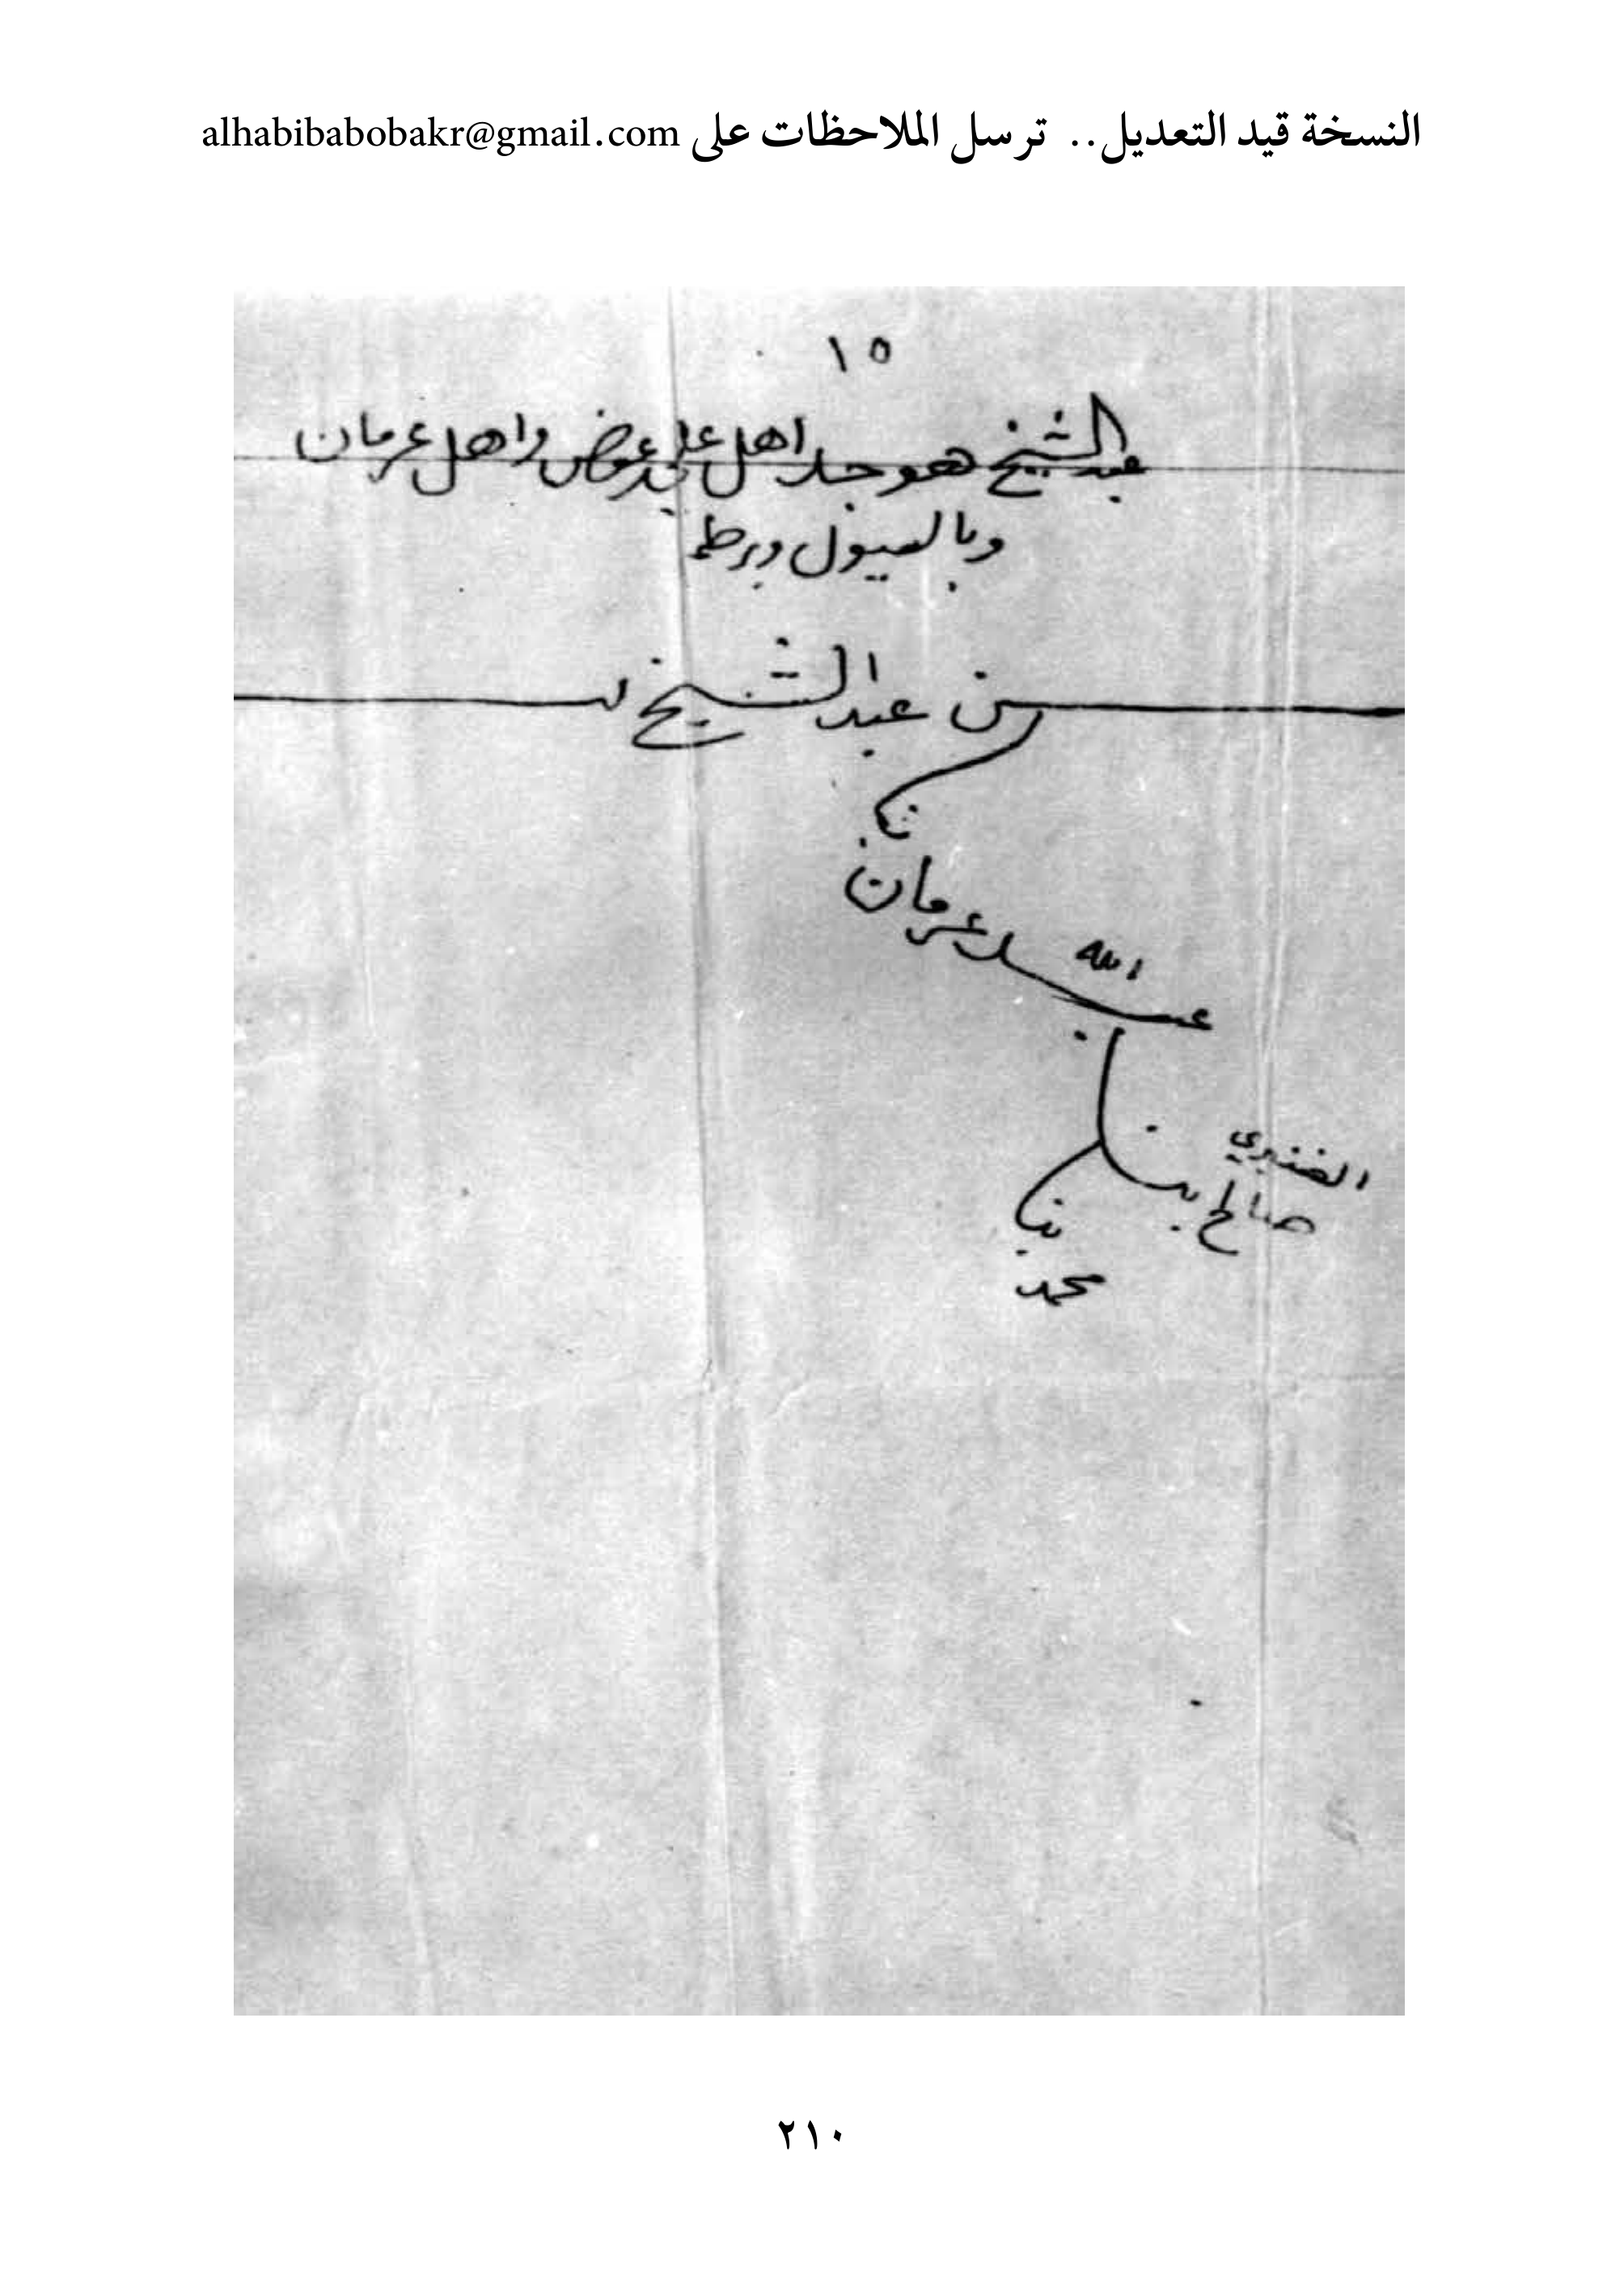 النسخة قيد التعديل.. ترسل الملاحظات على alhabibabobakr@gmail.com
١٥
عبد الشيخ هو جد اهل علي عوض واهل عرمان
وبالعيول وبرط
بن عبد الشيخ
بن
عرمان
عبد الله
الضنبري
صالح بن
بن
محمد
٢١٠